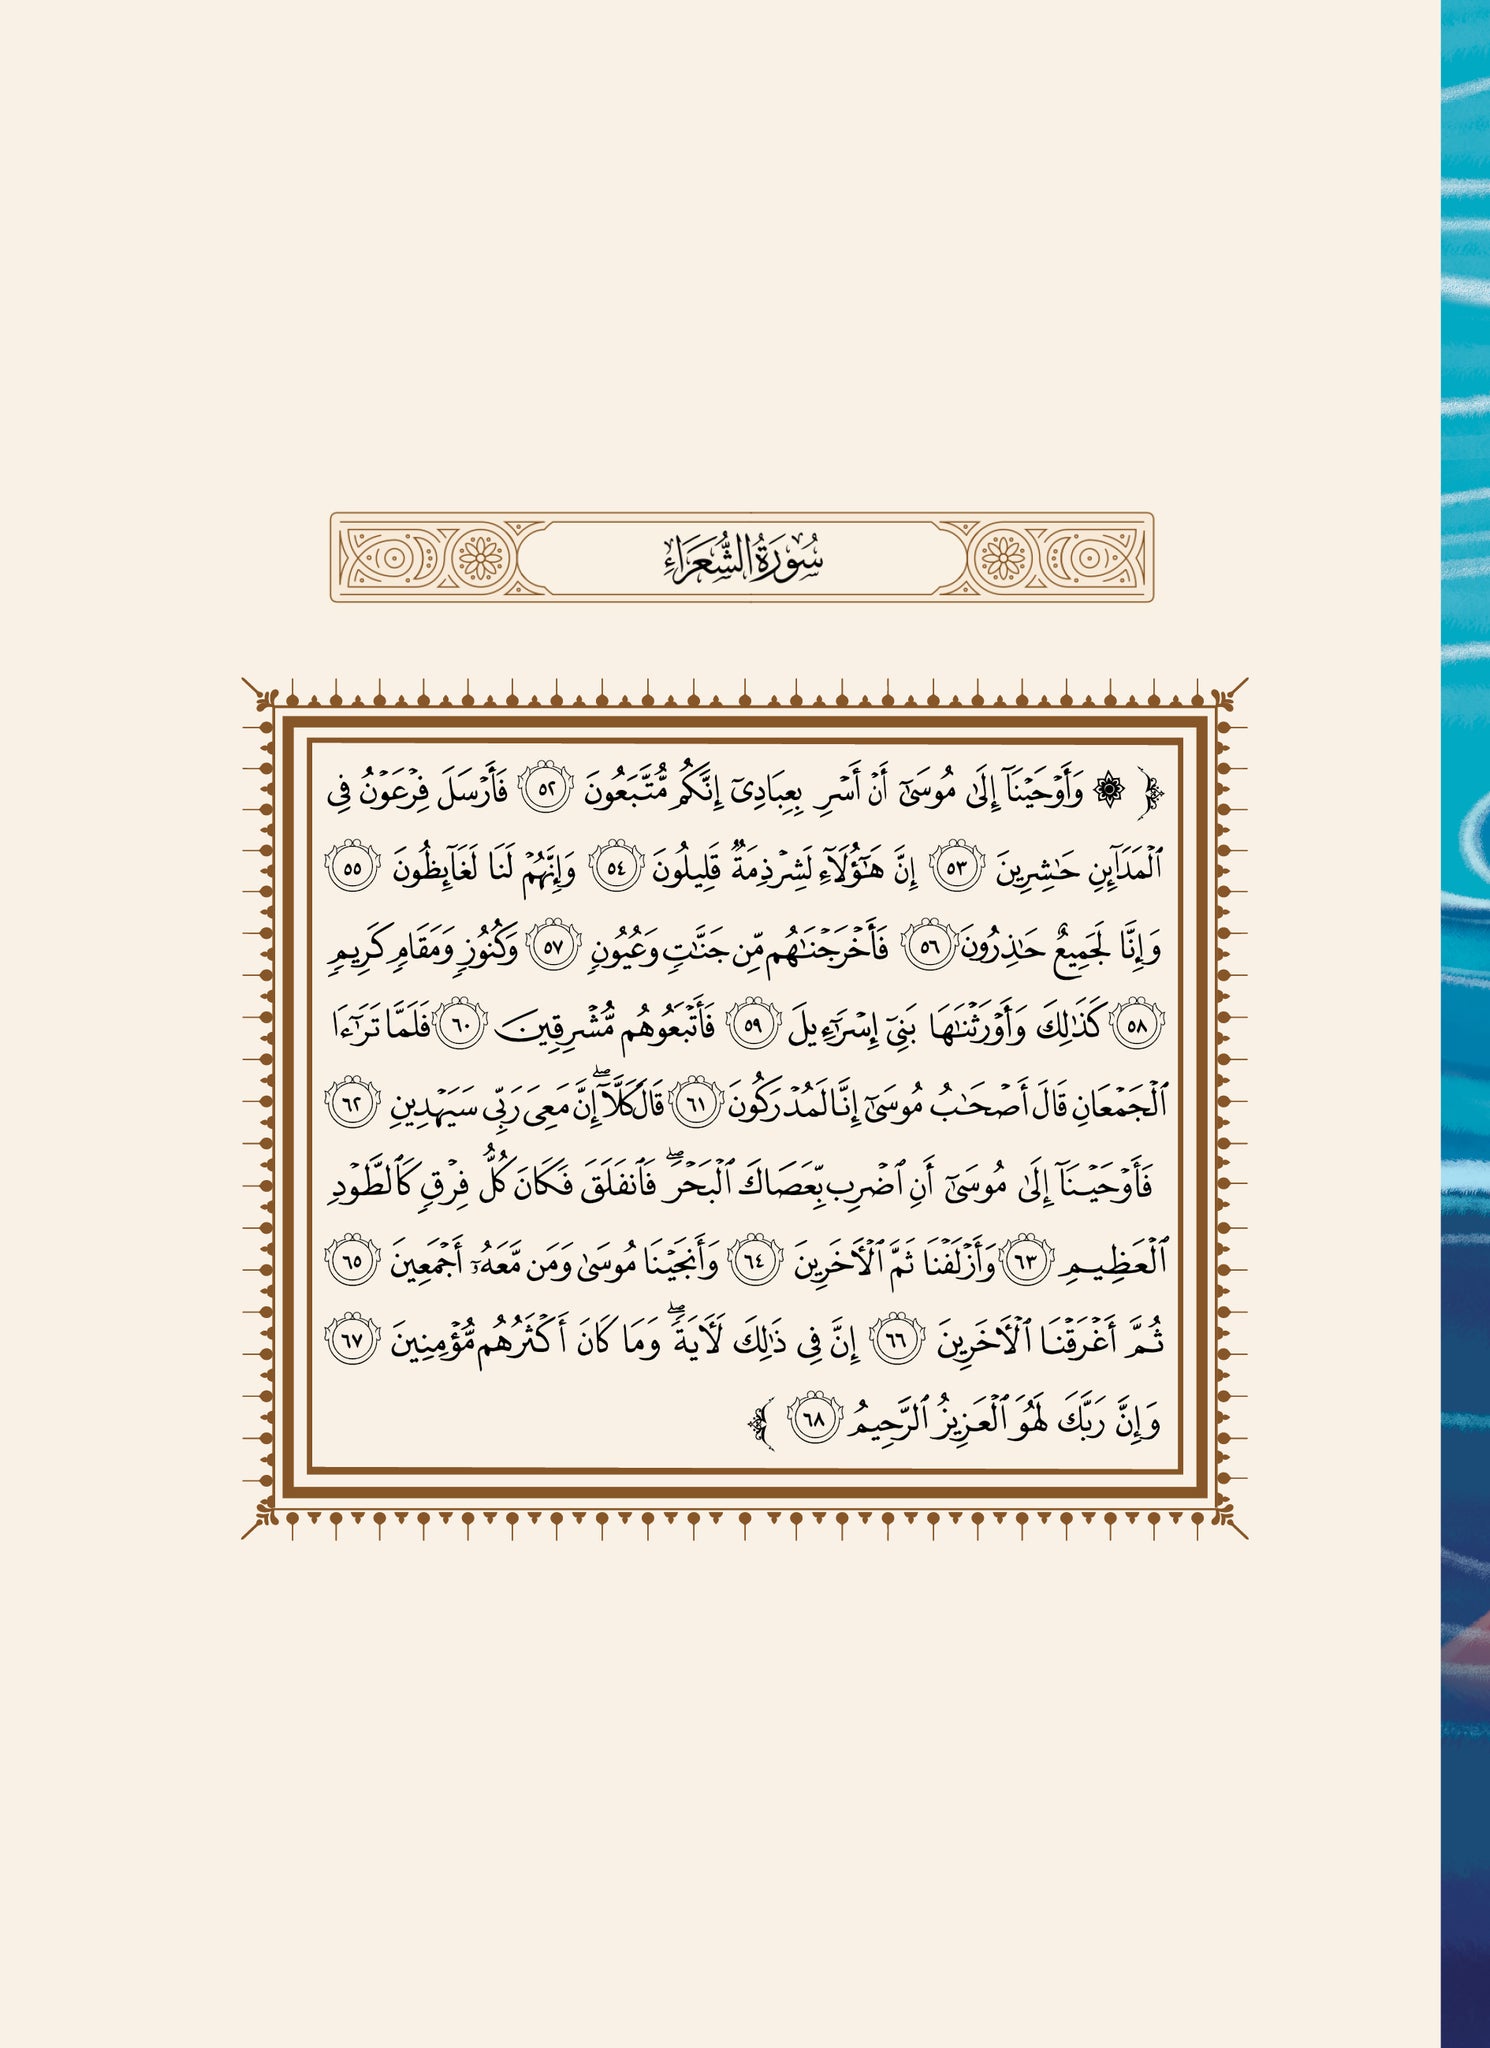 سُورَةُ الشُّعَرَاءِ
﴿ ۞ وَأَوۡحَيۡنَآ إِلَىٰ مُوسَىٰٓ أَنۡ أَسۡرِ بِعِبَادِيٓ إِنَّكُم مُّتَّبَعُونَ ٥٢ فَأَرۡسَلَ فِرۡعَوۡنُ فِي
ٱلۡمَدَآئِنِ حَٰشِرِينَ ٥٣ إِنَّ هَٰٓؤُلَآءِ لَشِرۡذِمَةٞ قَلِيلُونَ ٥٤ وَإِنَّهُمۡ لَنَا لَغَآئِظُونَ ٥٥
وَإِنَّا لَجَمِيعٌ حَٰذِرُونَ ٥٦ فَأَخۡرَجۡنَٰهُم مِّن جَنَّٰتٖ وَعُيُونٖ ٥٧ وَكُنُوزٖ وَمَقَامٖ كَرِيمٖ
٥٨ كَذَٰلِكَ وَأَوۡرَثۡنَٰهَا بَنِيٓ إِسۡرَٰٓءِيلَ ٥٩ فَأَتۡبَعُوهُم مُّشۡرِقِينَ ٦٠ فَلَمَّا تَرَٰٓءَا
ٱلۡجَمۡعَانِ قَالَ أَصۡحَٰبُ مُوسَىٰٓ إِنَّا لَمُدۡرَكُونَ ٦١ قَالَ كَلَّآۖ إِنَّ مَعِيَ رَبِّي سَيَهۡدِينِ ٦٢
فَأَوۡحَيۡنَآ إِلَىٰ مُوسَىٰٓ أَنِ ٱضۡرِب بِّعَصَاكَ ٱلۡبَحۡرَۖ فَٱنفَلَقَ فَكَانَ كُلُّ فِرۡقٖ كَٱلطَّوۡدِ
ٱلۡعَظِيمِ ٦٣ وَأَزۡلَفۡنَا ثَمَّ ٱلۡأٓخَرِينَ ٦٤ وَأَنجَيۡنَا مُوسَىٰ وَمَن مَّعَهُۥٓ أَجۡمَعِينَ ٦٥
ثُمَّ أَغۡرَقۡنَا ٱلۡأٓخَرِينَ ٦٦ إِنَّ فِي ذَٰلِكَ لَأٓيَةٗۖ وَمَا كَانَ أَكۡثَرُهُم مُّؤۡمِنِينَ ٦٧
وَإِنَّ رَبَّكَ لَهُوَ ٱلۡعَزِيزُ ٱلرَّحِيمُ ٦٨ ﴾